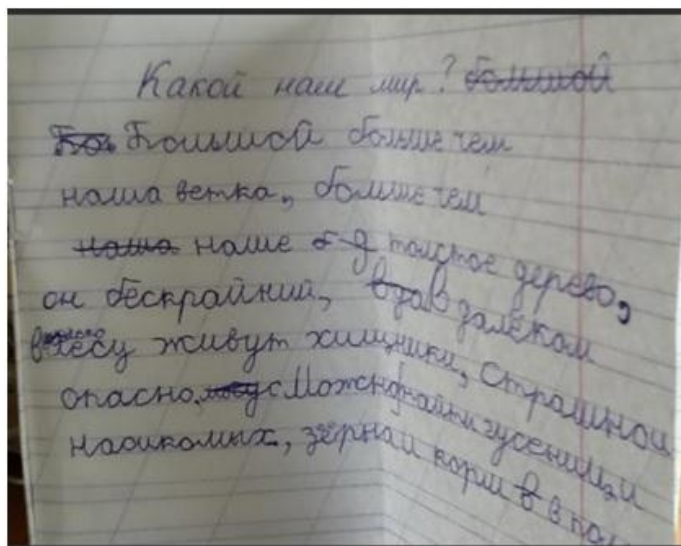 Какой наш мир? большой
Большой больше чем
наша ветка, больше чем
наша наше толстое дерево,
он бескрайний, в далёком
лесу живут хищники, страшно и
опасно, Можно найти гусениц, и
насикомых, зёрна и корм в в пол